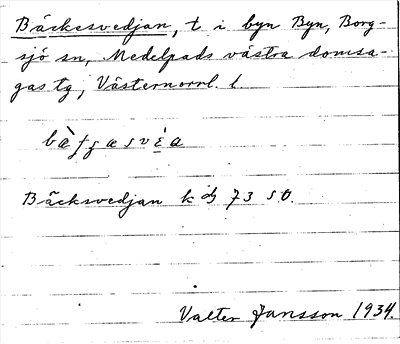 Bäckesvedjan, t i byn Byn, Borg-
sjö sn, Medelpads västra domsa-
gas tg, Västernorrl. l.
Bäcksvedjan k 73 SO.
Valter Jansson 1934.